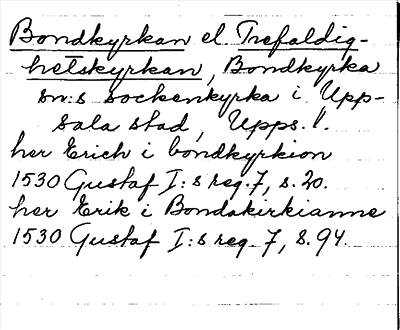 Bondkyrkan el. Trefaldig-
hetskyrkan, Bondkyrka
sn:s sockenkyrka i Upp-
sala stad, Upps. l.
her Erich i bondkyrkion
1530 Gustaf I:s reg. 7, s. 20.
her Erik i Bondakirkianne
1530 Gustaf I:s reg. 7, s. 94.